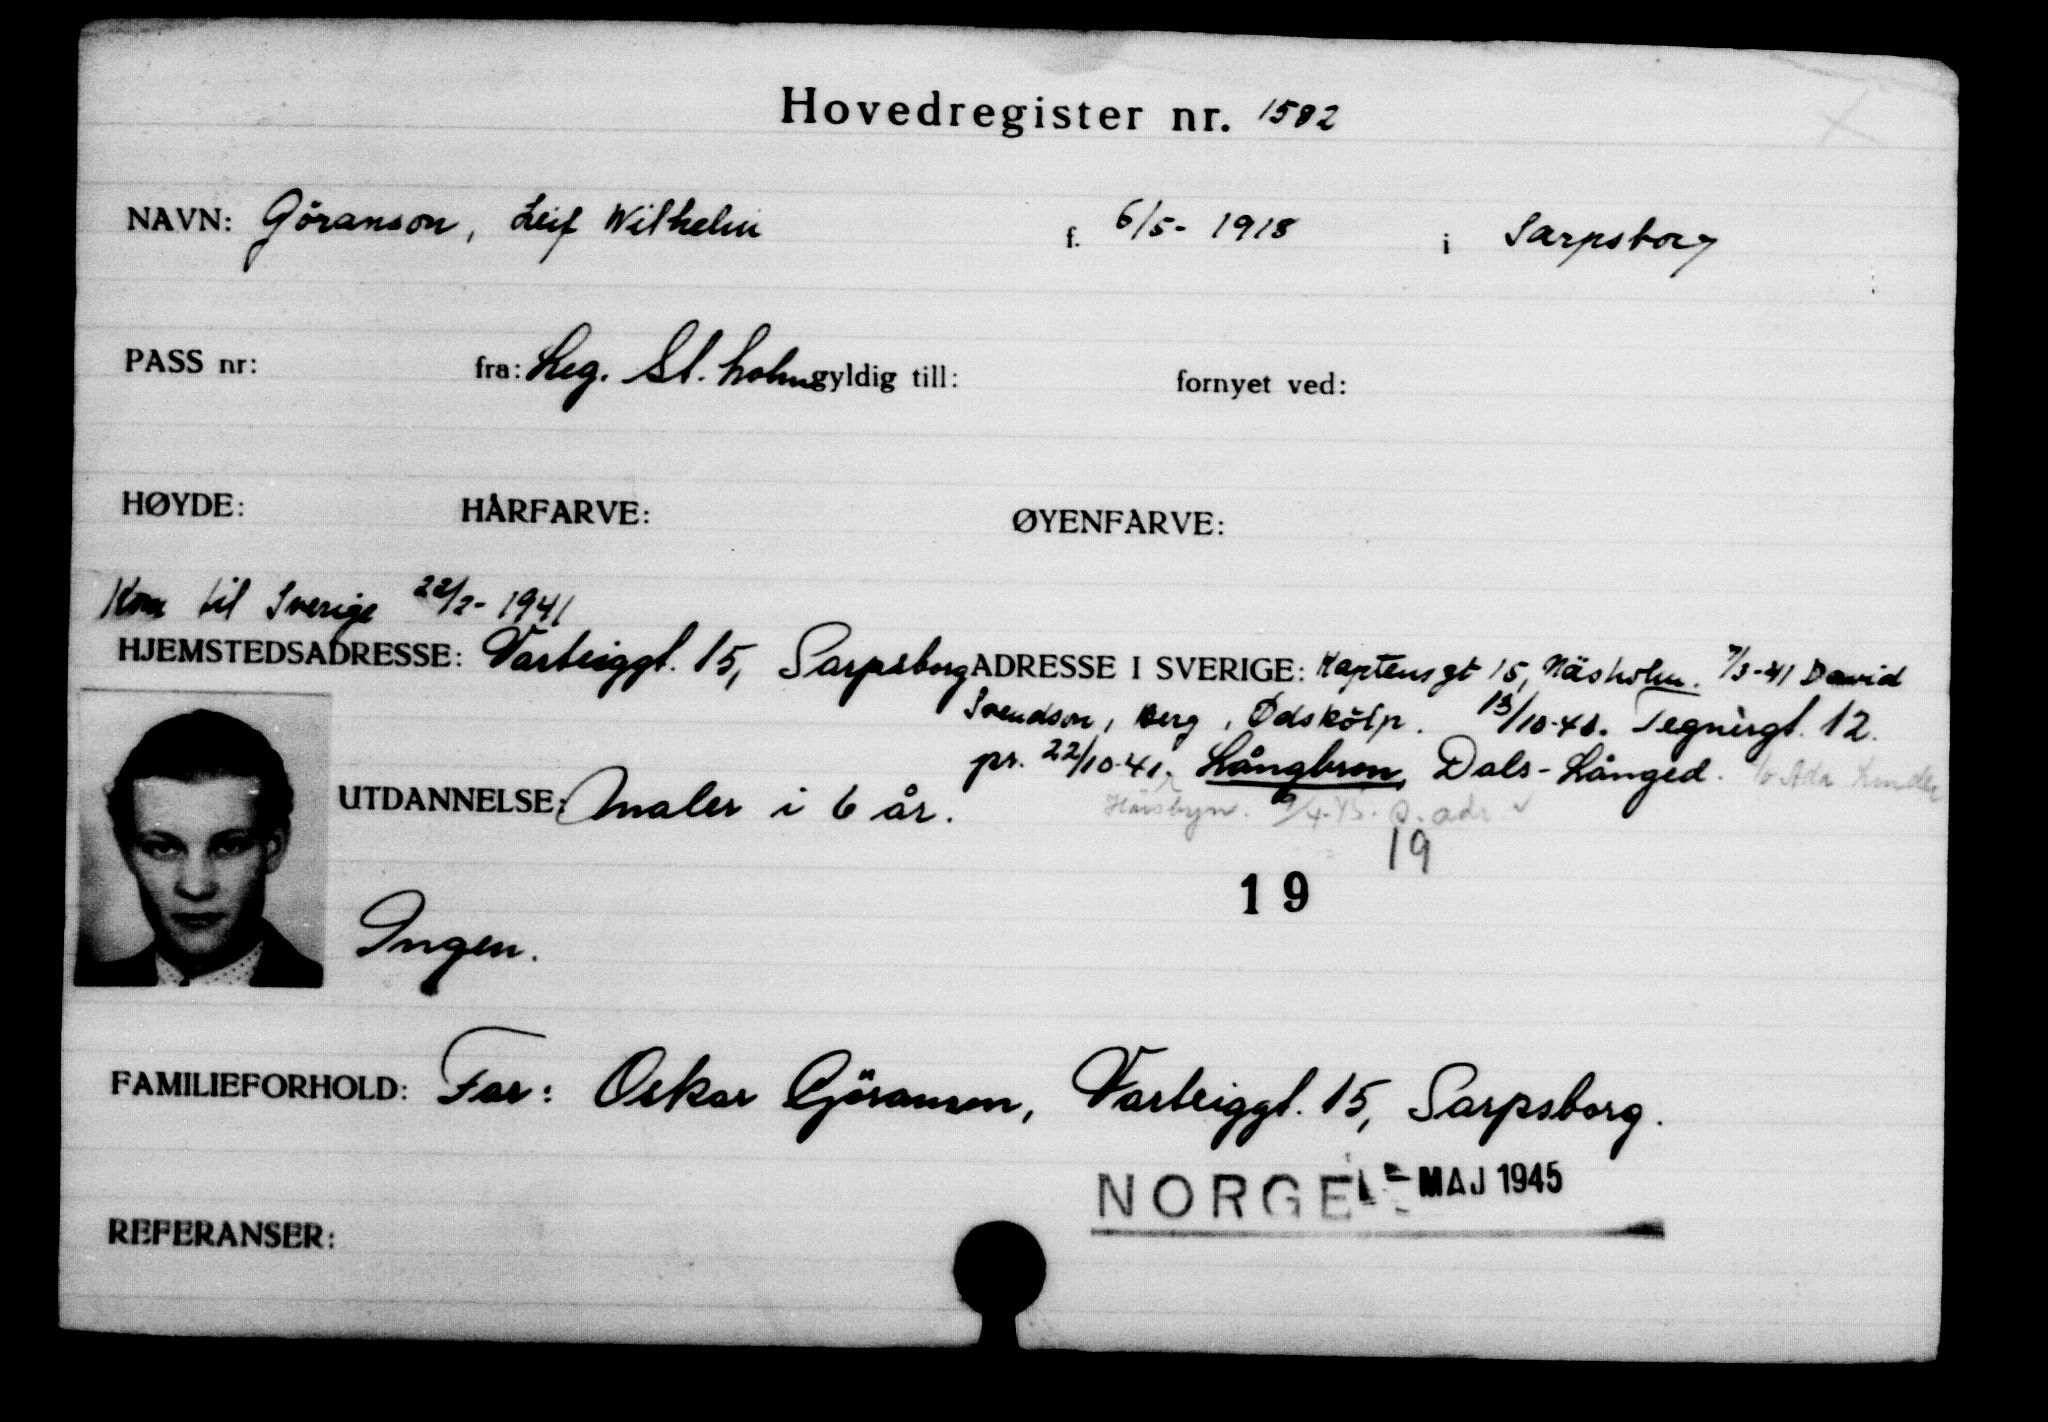 Hovedregister nr. 1582
NAVN: Göranson, Leif Wilhelm f. 6/5- 1918 i Sarpsborg
PASS nr: fra: Leg. St. holm gyldig till: fornyet ved:
HØYDE: HÅRFARVE: ØYENFARVE:
Kom til Sverige 22/2- 1941
HJEMSTEDSADRESSE: Varteiggt. 15, Sarpsborg ADRESSE I SVERIGE: Kaptensgt 15, Näsholm. 7/3-41 David
Svendson, Berg, Ødskölp. 13/10-41. Tegnérgt. 12.
pr. 22/10-41. Långbron, Dals-Långed.
UTDANNELSE: Maler i 6 år.
9/4-45. s. adr.
19
19
Ingen.
FAMILIEFORHOLD: Far: Oskar Göranson, Varteiggt. 15, Sarpsborg.
NORGE MAJ 1945
REFERANSER: